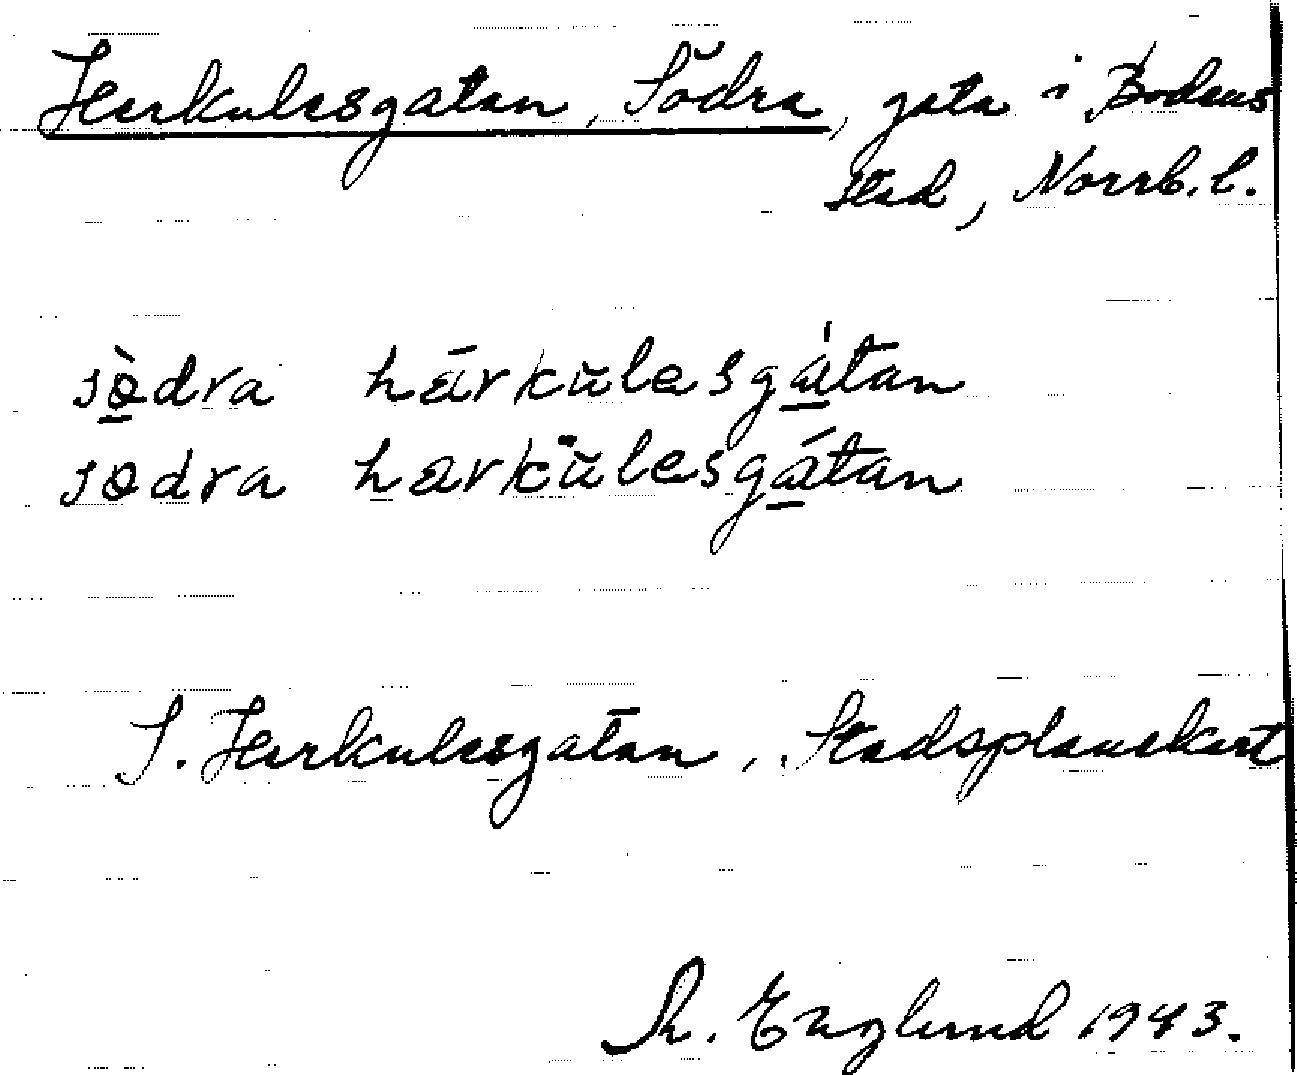 Herkulesgatan, Södra, gata i Bodens
stad, Norrb. l.
södra härkulesgatan
södra härkulesgatan
S. Herkulesgatan, Stadsplanekart
R. Englund 1943.